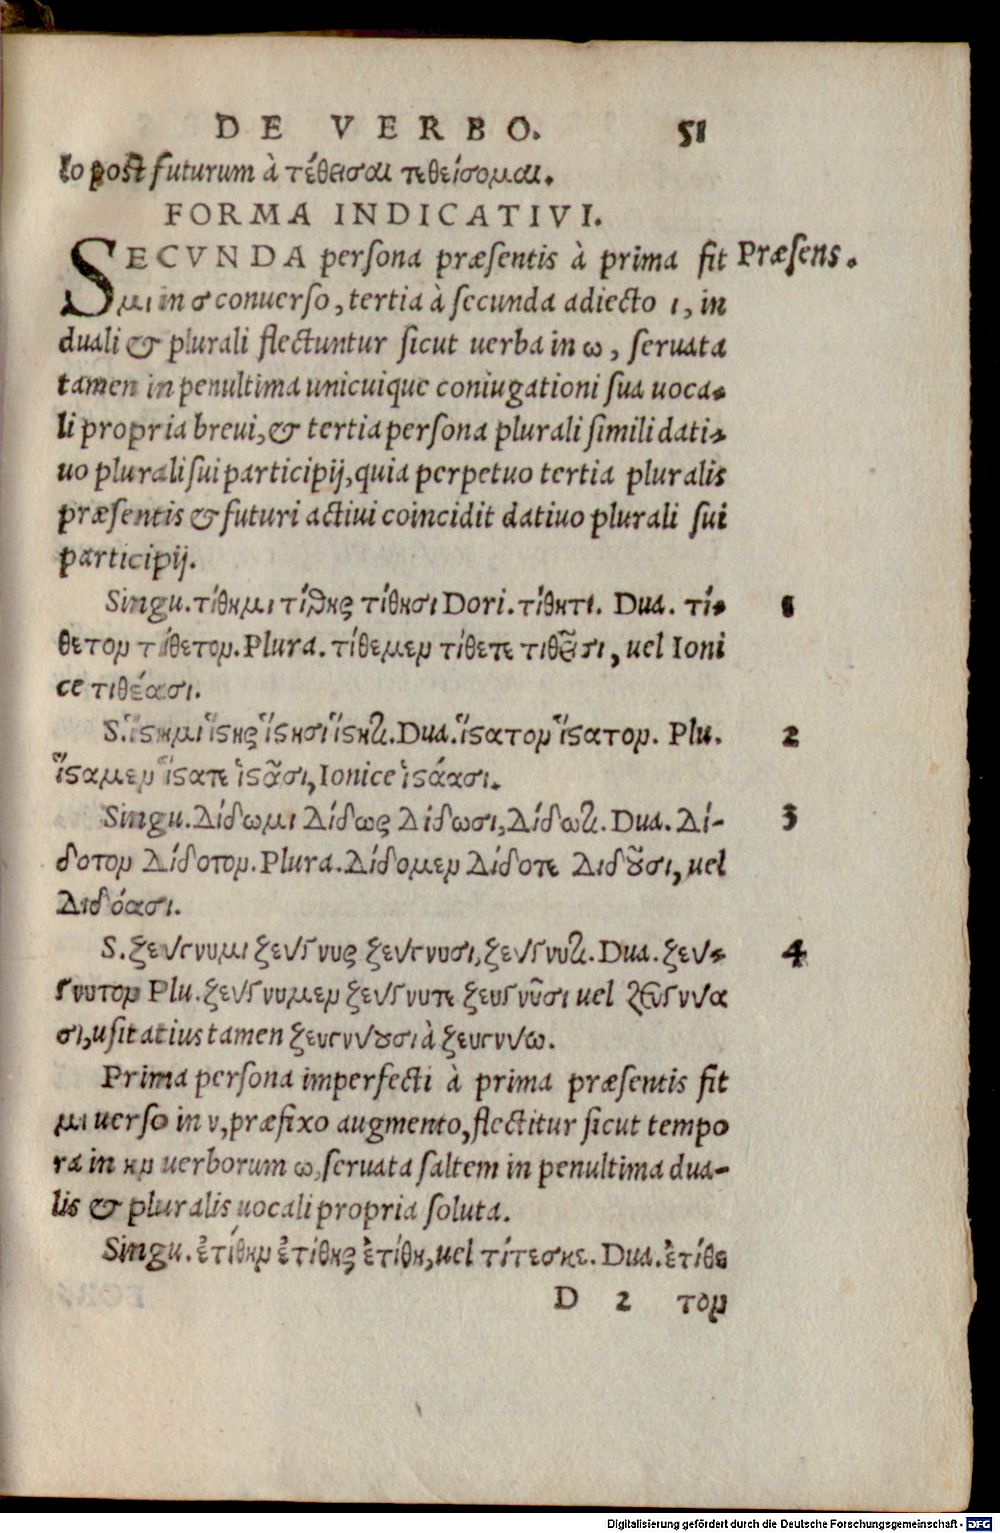 DE VERBO. 51
lo post futurum à τέθεισαι τεθείσομαι.
FORMA INDICATIVI.
SECVNDA persona præsentis à prima fit Præsens.
μι in σ conuerso, tertia à secunda adiecto ι, in
duali & plurali flectuntur sicut uerba in ω, seruata
tamen in penultima unicuique coniugationi sua uoca-
li propria breui, & tertia persona plurali simili dati-
uo plurali sui participij, quia perpetuo tertia pluralis
præsentis & futuri actiui coincidit datiuo plurali sui
participij.
Singu. τίθημι τίθης τίθησι Dori. τίθητι. Dua. τί- 1
θετον τίθετον. Plura. τίθεμεν τίθετε τιθεῖσι, uel Ioni
ce τιθέασι.
S. ἵστημι ἵστης ἵστησι ἵστητι. Dua. ἵστατον ἵστατον. Plu. 2
ἵσταμεν ἵστατε ἱστᾶσι, Ionice ἱστάασι.
Singu. Δίδωμι Δίδως Δίδωσι, Δίδωτι. Dua. Δί- 3
δοτον Δίδοτον. Plura. Δίδομεν Δίδοτε Διδοῦσι, uel
Διδόασι.
S. ζεύγνυμι ζεύγνυς ζεύγνυσι, ζεύγνυτι. Dua. ζεύ- 4
γνυτον Plu. ζεύγνυμεν ζεύγνυτε ζευγνῦσι uel ζευγνύα
σι, usitatius tamen ζευγνύουσι à ζευγνύω.
Prima persona imperfecti à prima præsentis fit
μι uerso in ν, præfixo augmento, flectitur sicut tempo
ra in ην uerborum ω, seruata saltem in penultima dua-
lis & pluralis uocali propria soluta.
Singu. ἐτίθην ἐτίθης ἐτίθη, uel τίτεσκε. Dua. ἐτίθε
D 2 τον
Digitalisierung gefördert durch die Deutsche Forschungsgemeinschaft - DFG